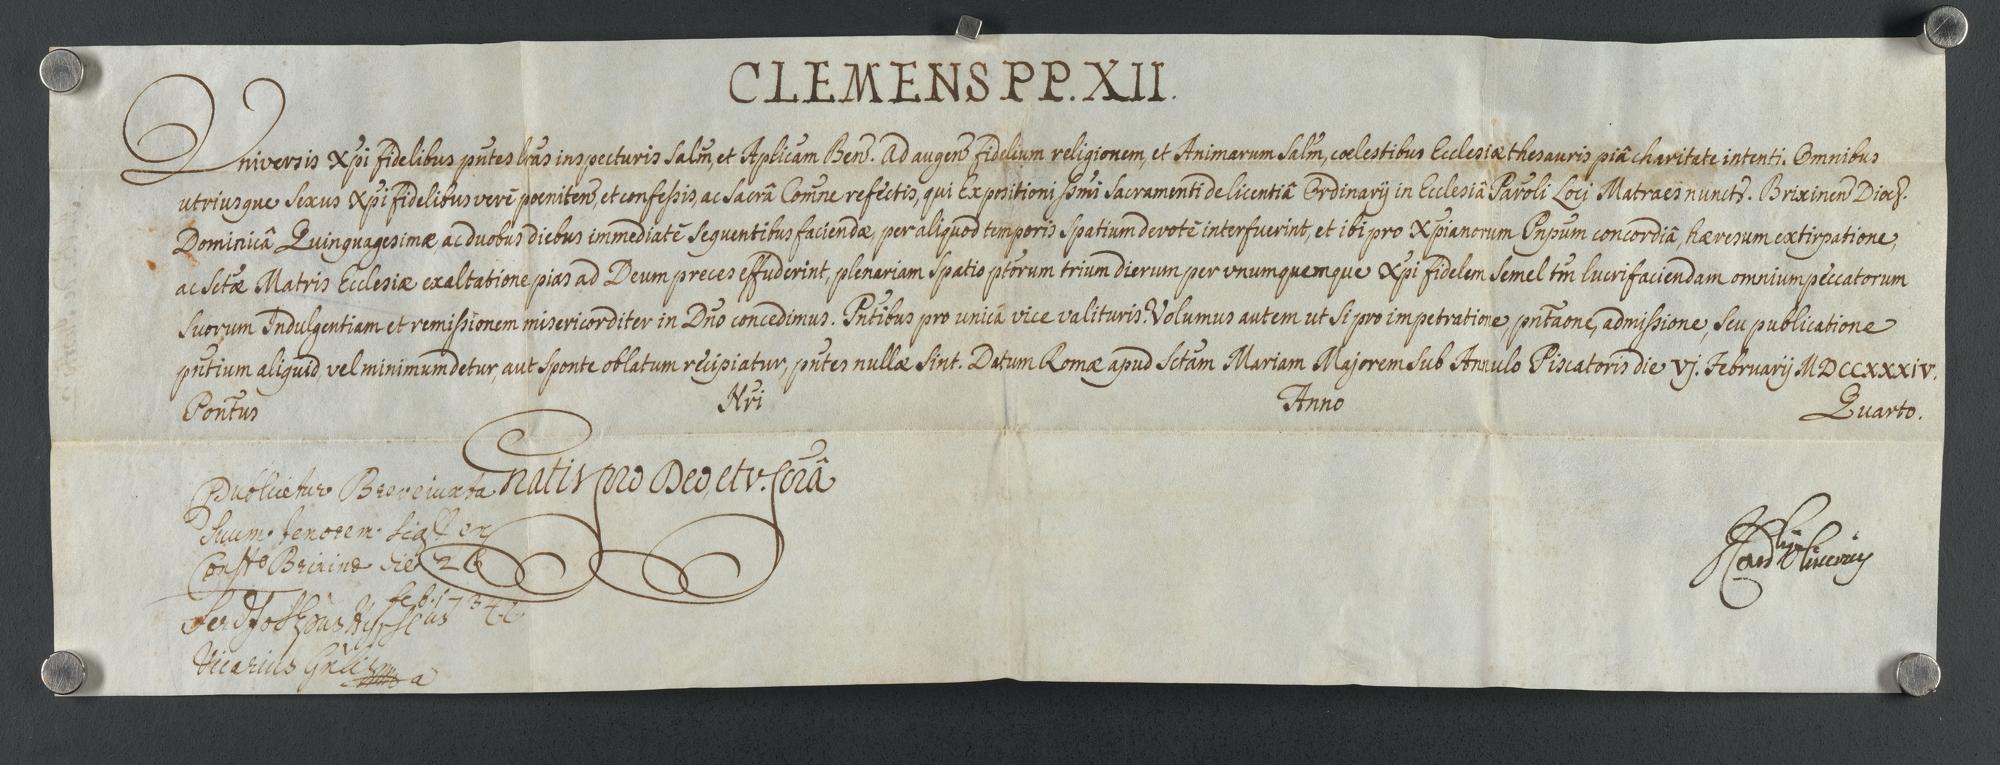 CLEMENS PP. XII.
Universis Xpi fidelibus pñtes lrãs inspecturis salm̃, et Aplicam Beñ. Ad augeñ fidelium religionem, et Animarum Salm̃, coelestibus Ecclesiæ thesauris piâ charitate intenti. Omnibus
utriusque sexus Xpi fidelibus verè poeniteñ, et confessis, ac sacrâ Com̃ne refectis, qui Expositioni Ssm̃i Sacramenti de licentiâ Ordinarij in Ecclesiâ Parõli Loci Matraes nuncũ. Brixineñ Dioeč.
Dominicâ Quinquagesimæ, ac duobus diebus immediatè sequentibus faciendæ, per aliquod temporis spatium devotè interfuerint, et ibi pro Xpianorum Pñpum concordiâ, hæresum extirpatione,
ac Sctæ Matris Ecclesiæ exaltatione pias ad Deum preces effuderint, plenariam spatio ptõrum trium dierum per unumquemque Xpi fidelem semel tm̃ lucrifaciendam omnium peccatorum
suorum Indulgentiam et remissionem misericorditer in Dñō concedimus. Pñtibus pro unicâ vice valituris. Volumus autem ut si pro impetratione, pñtaone, admissione, seu publicatione
pñtium aliquid, vel minimum detur, aut sponte oblatum recipiatur, pñtes nullæ sint. Datum Romæ apud Sctam Mariam Majorem sub Annulo Piscatoris die Vj. Februarij MDCCXXXIV.
Pontũs Nri Anno Quarto.
Gratis pro Deo, et v. scrã
Publicetur Breve iuxta
suum tenorem.
Brixinæ die 26
feb. 1734
Vicarius Gñlis